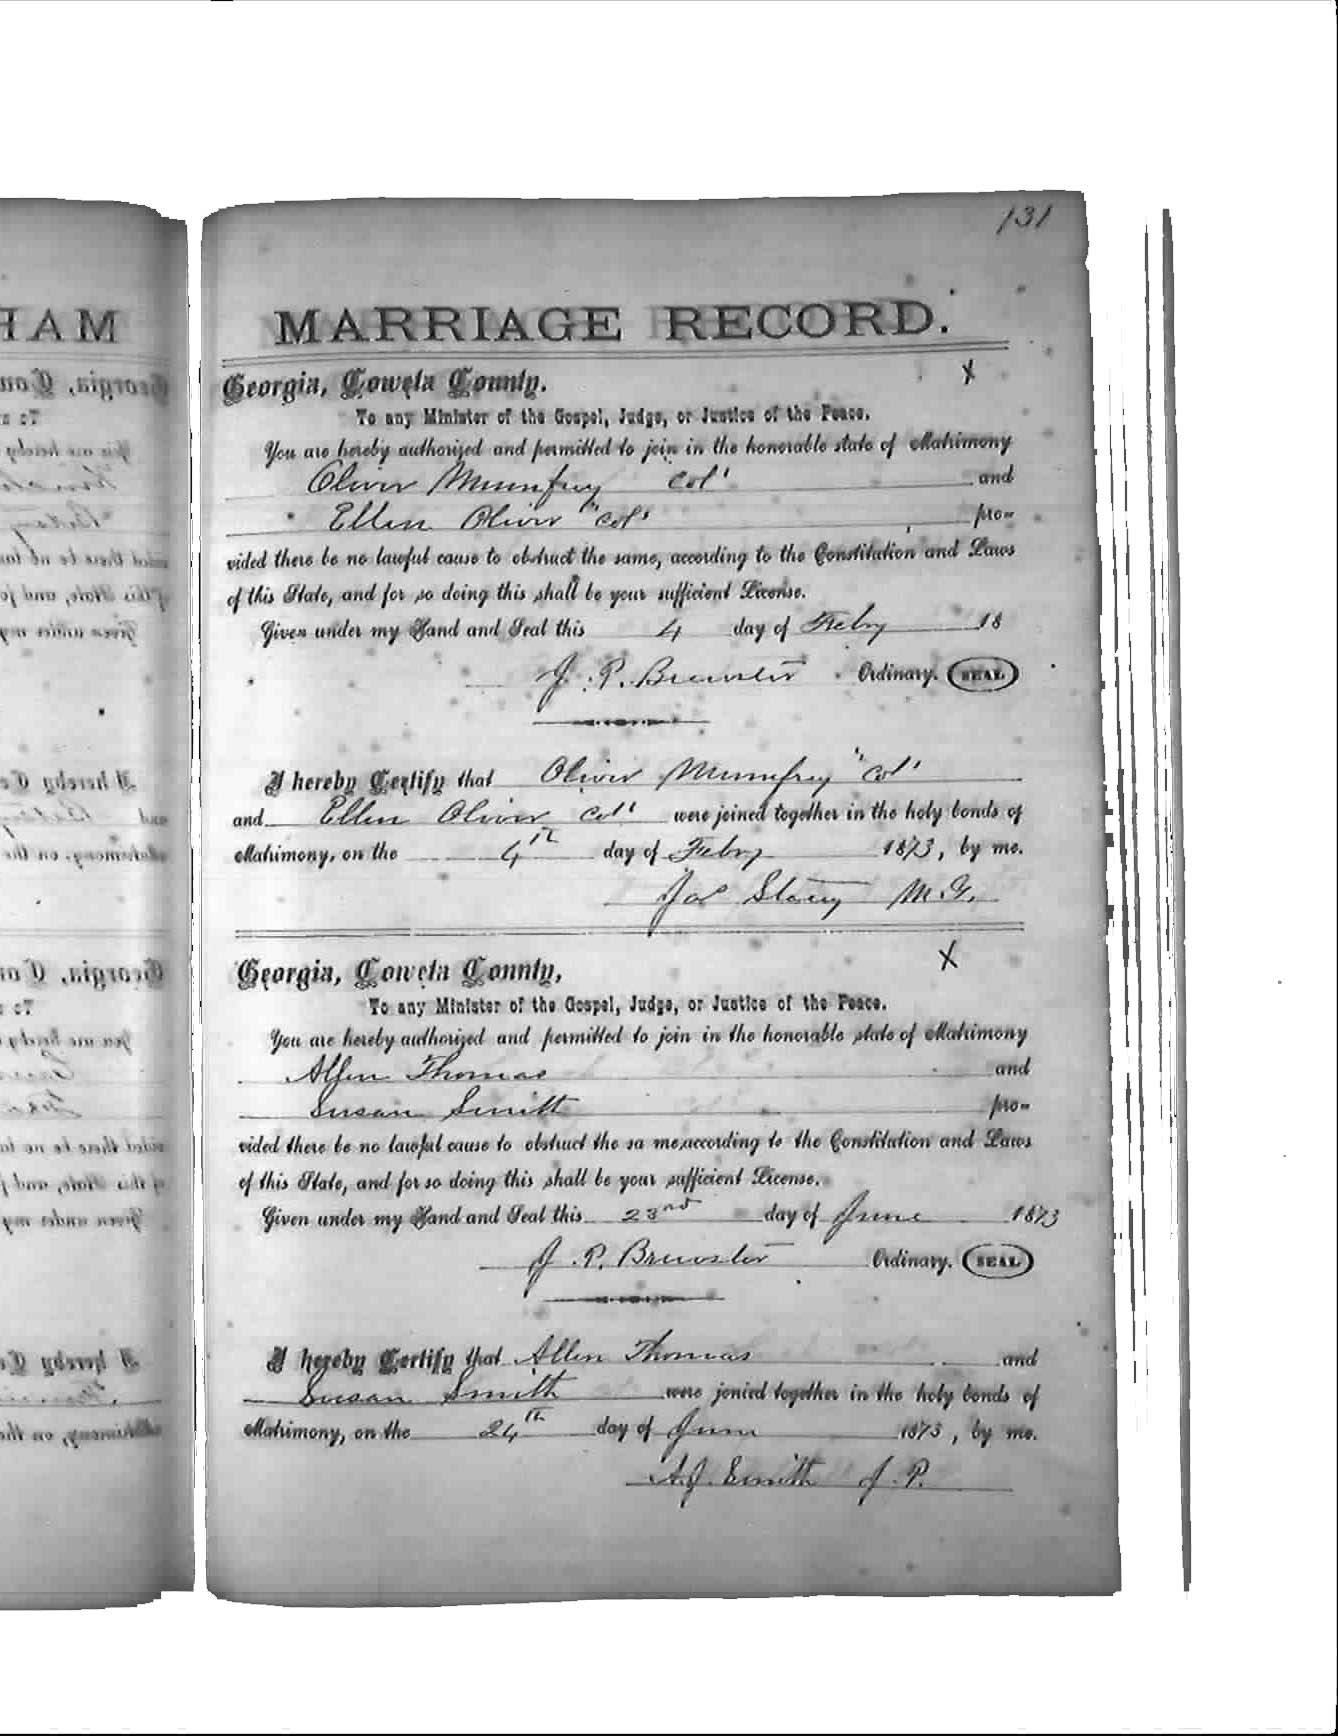 131
MARRIAGE RECORD.
Georgia, Coweta County.
X
To any Minister of the Gospel, Judge, or Justice of the Peace.
You are hereby authorized and permitted to join in the honorable state of Matrimony
Oliver Mumfrey Col' and
Ellen Oliver "Col' pro-
vided there be no lawful cause to obstruct the same, according to the Constitution and Laws
of this State, and for so doing this shall be your sufficient License.
Given under my Hand and Seal this 4 day of Feby 18
J. P. Brewster Ordinary. SEAL
I hereby Certify that Oliver Mumfrey "Col'
and Ellen Oliver Col' were joined together in the holy bonds of
Matrimony, on the 4th day of Feby 1873, by me.
Stacy M.G.
Georgia, Coweta County,
X
To any Minister of the Gospel, Judge, or Justice of the Peace.
You are hereby authorized and permitted to join in the honorable state of Matrimony
Allen Thomas and
Susan Smith pro-
vided there be no lawful cause to obstruct the sa me,according to the Constitution and Laws
of this State, and for so doing this shall be your sufficient License.
Given under my Hand and Seal this 23rd day of June 1873
J. P. Brewster Ordinary. SEAL
I hereby Certify that Allen Thomas and
Susan Smith were jonied together in the holy bonds of
Matrimony, on the 24th day of June 1873, by me.
A.J. Smith J.P.